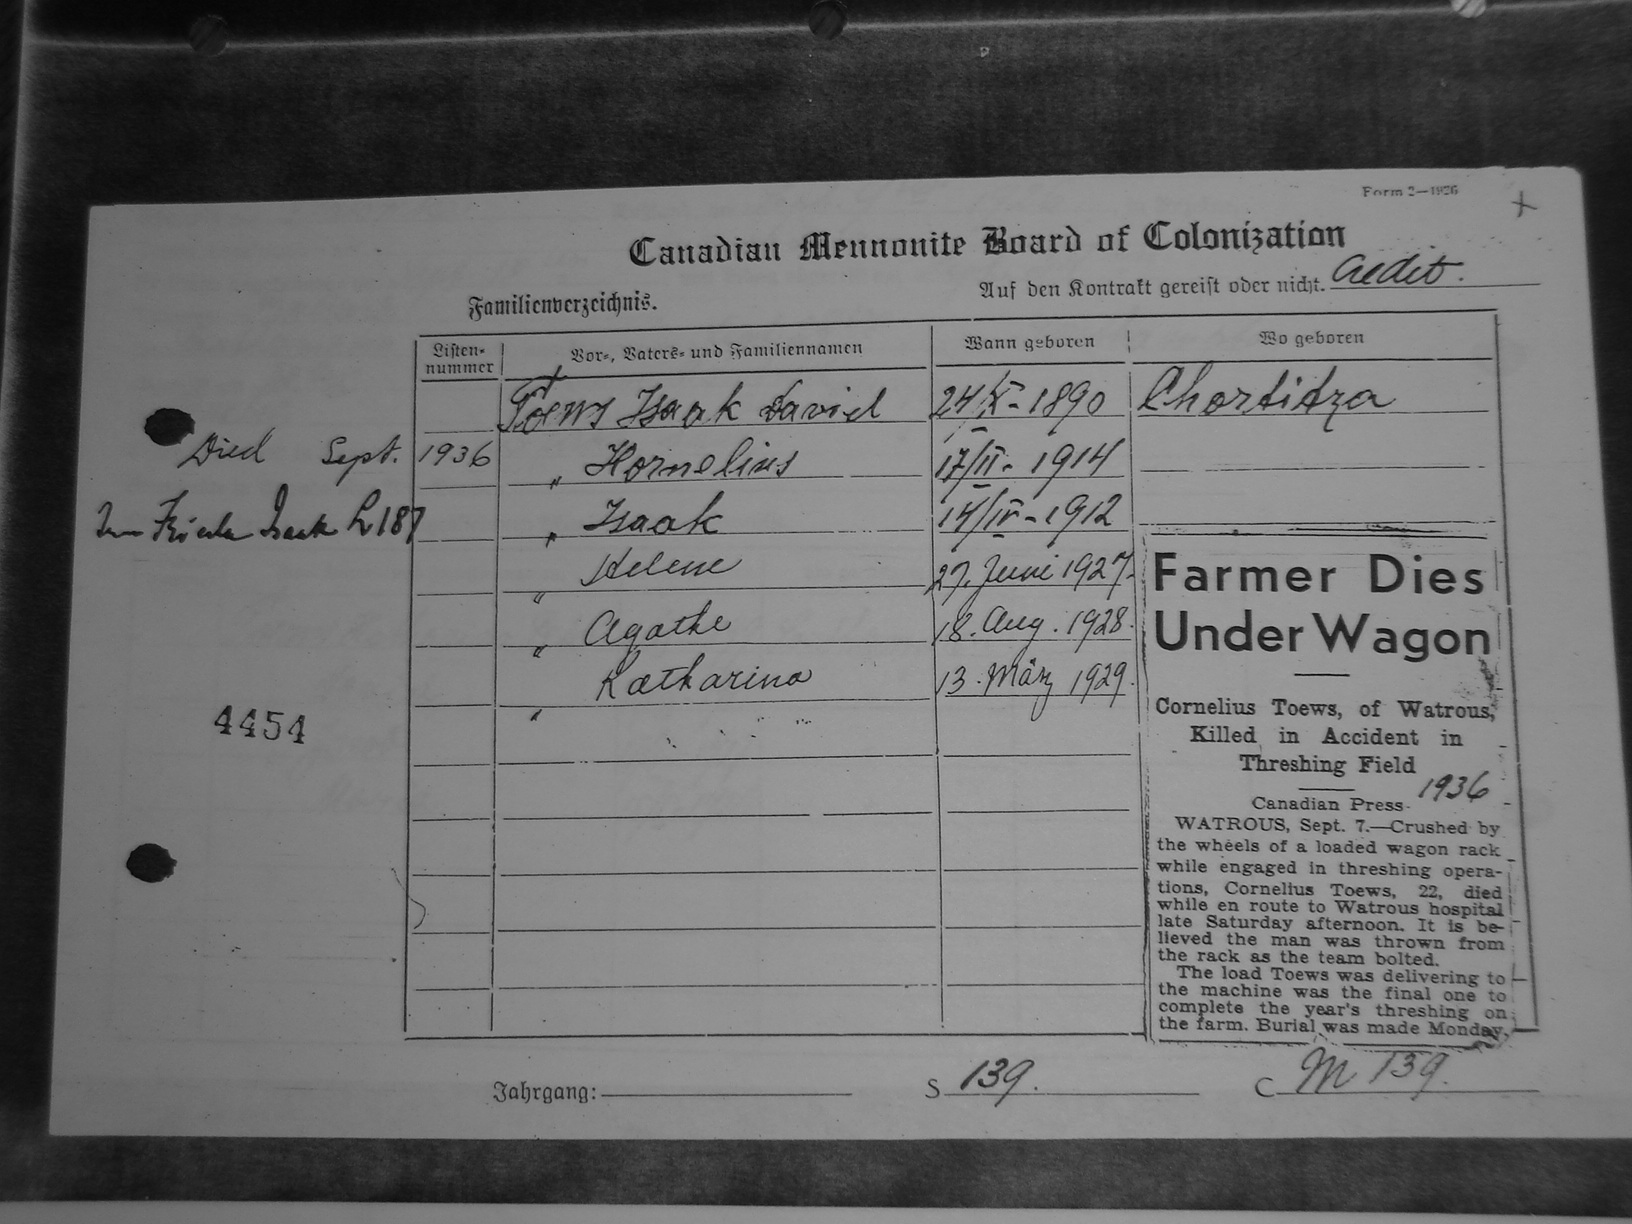 Form 2—1926
Canadian Mennonite Board of Colonization
Auf den Kontrakt gereist oder nicht. Credit.
Familienverzeichnis.
Listen-nummer Vor-, Vaters- und Familiennamen Wann geboren Wo geboren
Toews Isaak David 24/X-1890 Chortitza
Died Sept. 1936 " Kornelius 17/II-1914
Frieda Isaak L187 " Isaak 14/IV-1912
" Helene 27. Juni 1927.
" Agathe 18. Aug. 1928.
" Katharina 13. März 1929.
4454
Farmer Dies
Under Wagon
Cornelius Toews, of Watrous,
Killed in Accident in
Threshing Field
1936
Canadian Press
WATROUS, Sept. 7.—Crushed by
the wheels of a loaded wagon rack
while engaged in threshing opera-
tions, Cornelius Toews, 22, died
while en route to Watrous hospital
late Saturday afternoon. It is be-
lieved the man was thrown from
the rack as the team bolted.
The load Toews was delivering to
the machine was the final one to
complete the year's threshing on
the farm. Burial was made Monday.
Jahrgang: S 139. C M 139.